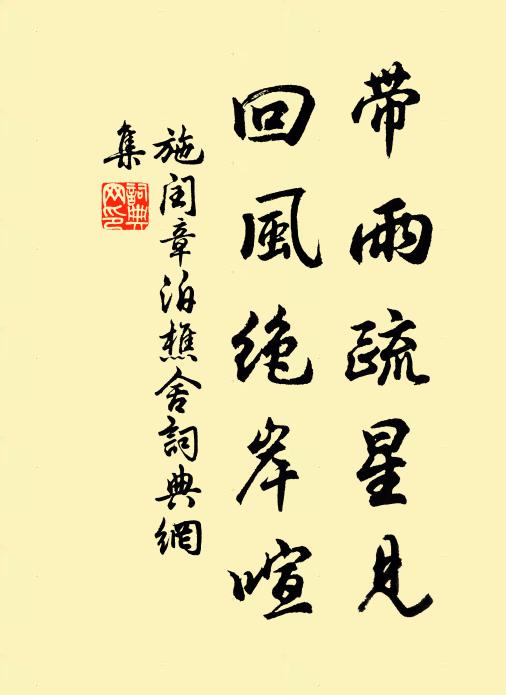 帶雨疏星見
回風絶岸喧
施閏章泊樵舍詞典網
集
詞典
网印